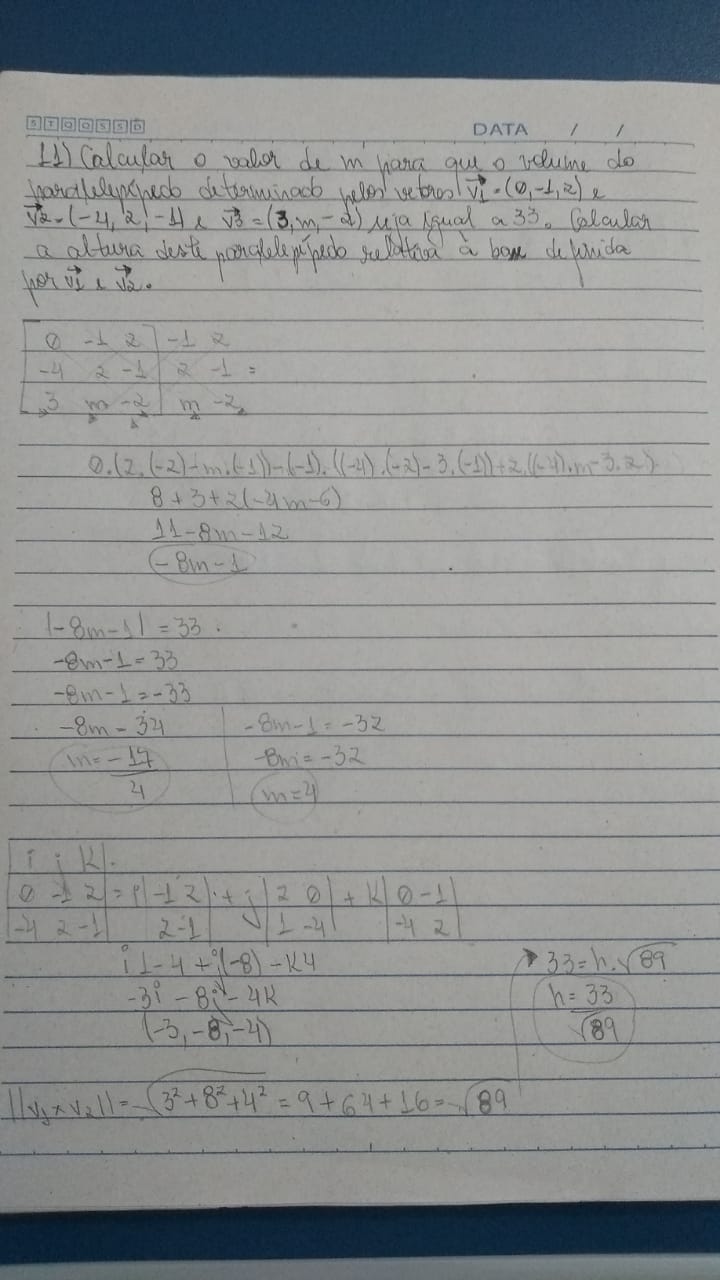 S T Q Q S S D
DATA / /
11) Calcular o valor de m para que o volume do
paralelepípedo determinado pelos vetores v1=(0,-1,2) e
v2=(-4, 2, -1) e v3=(3, m, -2) seja igual a 33. Calcular
a altura deste paralelepípedo relativa à base definida
por v1 e v2.
0 -1 2 | -1 2
-4 2 -1 | 2 -1 =
3 m -2 | m -2
0.(2.(-2)-m.(-1))-(-1).((-4).(-2)-3.(-1))+2.((-4).m-3.2)
8+3+2(-4m-6)
11-8m-12
-8m-1
|-8m-1| = 33
-8m-1=33
-8m-1=-33
-8m = 34
m= -17
4
-8m-1= -32
-8m= -32
m=4
i j K
0 -1 2 = i |-1 2| + j |2 0| + K |0 -1|
-4 2 -1 |2 -1| |1 -4| |-4 2|
i 1-4 + j(-8) - K4
-3i - 8j - 4K
(-3, -8, -4)
33=h.√89
h= 33
√89
||v1 x v2|| = √3²+8²+4² = 9+64+16=√89